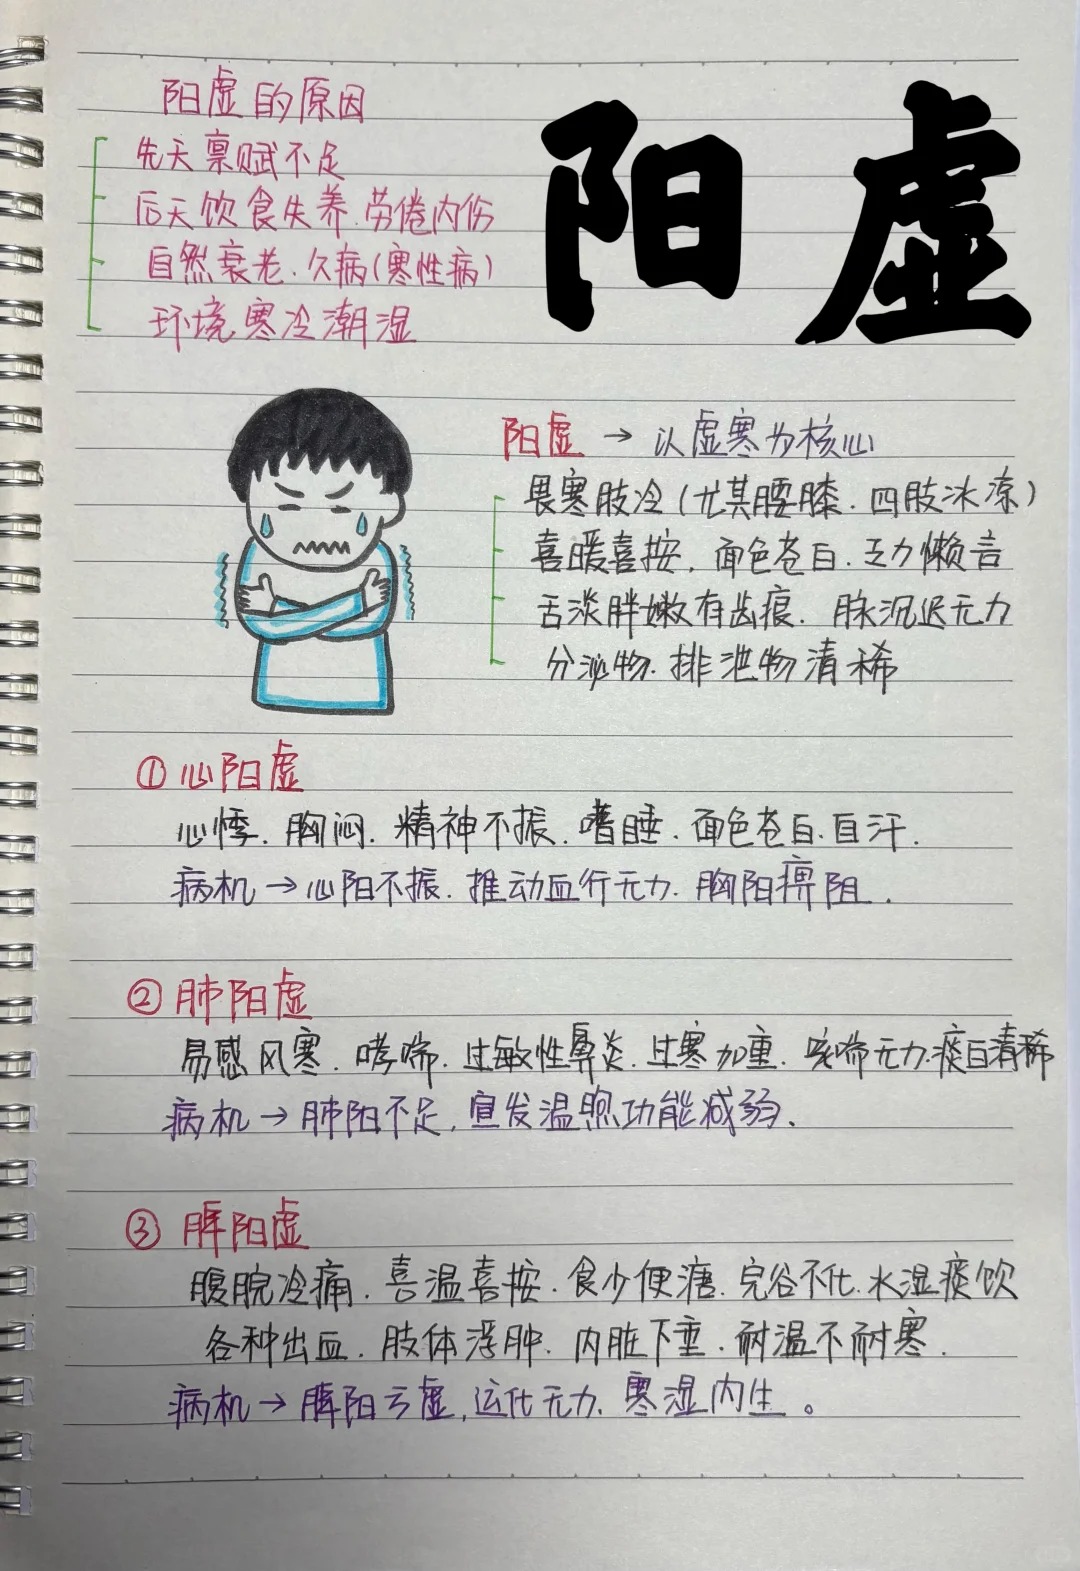 阳虚
阳虚的原因
先天禀赋不足
后天饮食失养.劳倦内伤
自然衰老.久病(寒性病)
环境寒冷潮湿
阳虚 → 以虚寒为核心
畏寒肢冷(尤其腰膝.四肢冰凉)
喜暖喜按,面色苍白.乏力懒言
舌淡胖嫩有齿痕.脉沉迟无力
分泌物.排泄物清稀
①心阳虚
心悸.胸闷.精神不振.嗜睡.面色苍白.自汗.
病机→心阳不振.推动血行无力.胸阳痹阻.
②肺阳虚
易感风寒.哮喘.过敏性鼻炎.过寒加重.咳喘无力.痰白清稀
病机→肺阳不足,宣发温煦功能减弱.
③脾阳虚
腹脘冷痛.喜温喜按.食少便溏.完谷不化.水湿痰饮
各种出血.肢体浮肿.内脏下垂.耐温不耐寒.
病机→脾阳亏虚,运化无力.寒湿内生。